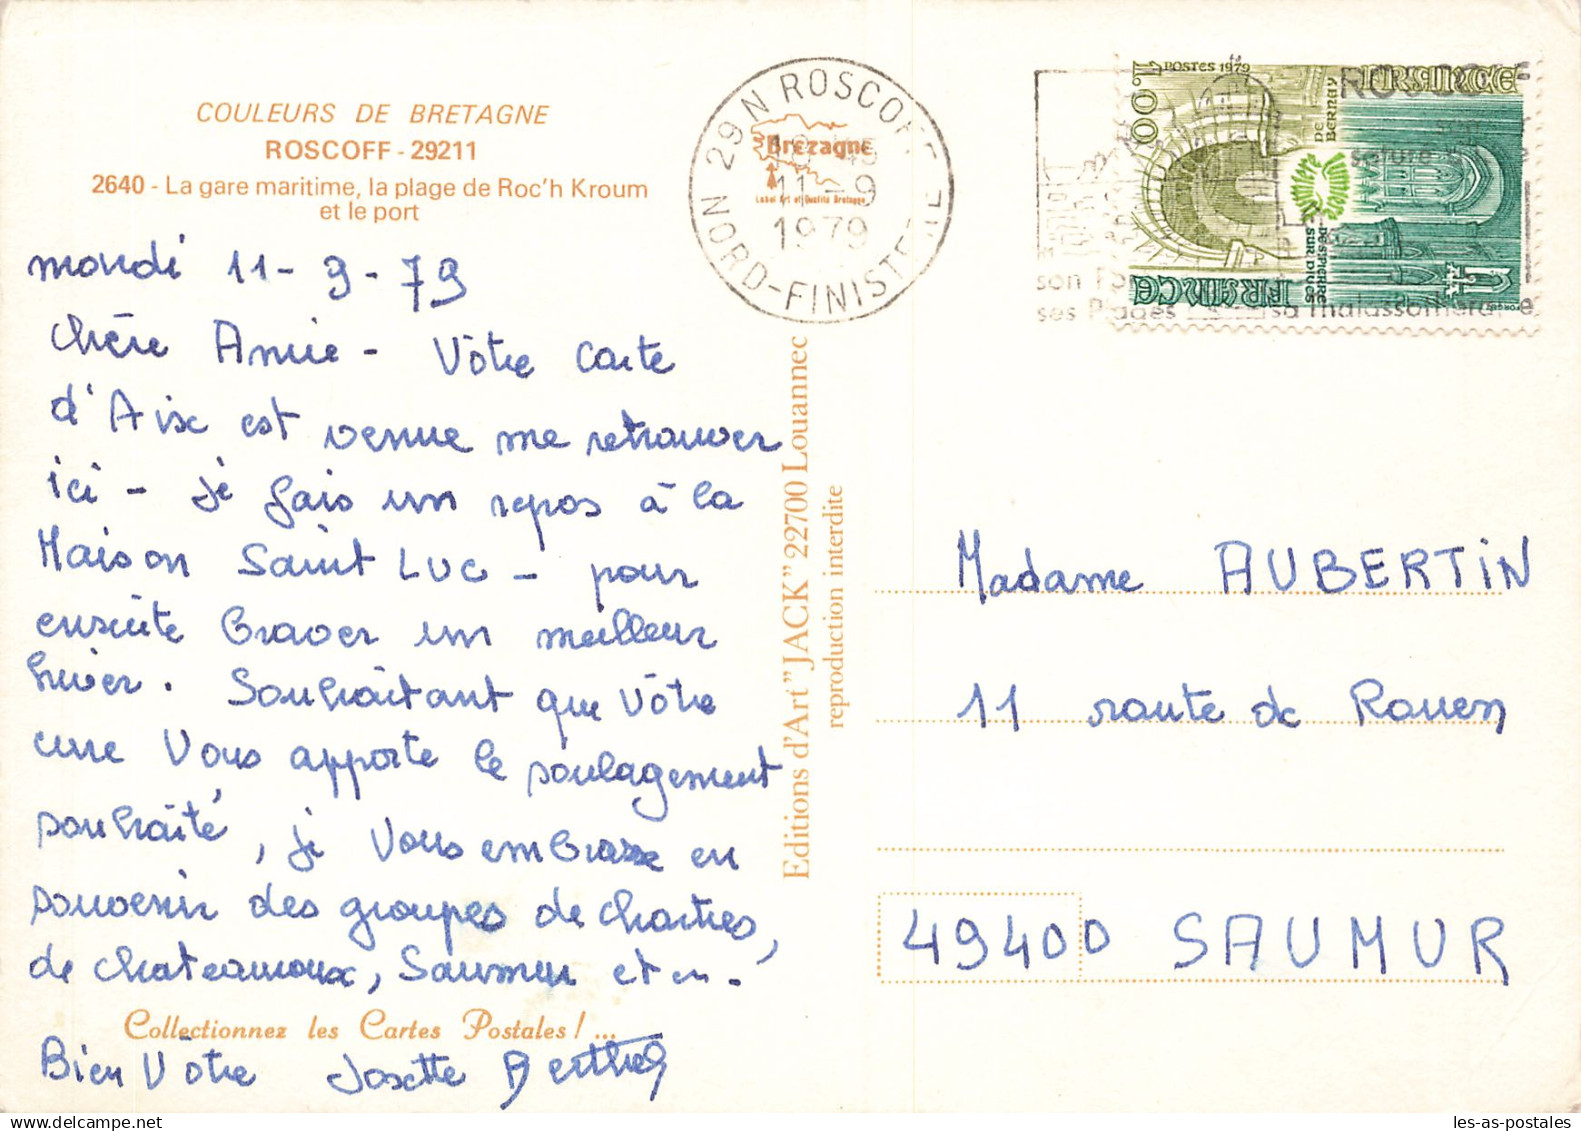 COULEURS DE BRETAGNE
ROSCOFF - 29211
2640 - La gare maritime, la plage de Roc'h Kroum
et le port
mardi 11-9-79
Chère Amie - Vôtre carte
d'Aix est venue me retrouver
ici - je fais un repos à la
Maison Saint Luc - pour
ensuite braver un meilleur
hiver. Souhaitant que vôtre
cure Vous apporte le soulagement
souhaité, je Vous embrasse en
souvenir des groupes de Chartres,
de Chateauroux, Saumur
Collectionnez les Cartes Postales !...
Bien Vôtre Josette
Editions d'Art "JACK" 22700 Louannec
reproduction interdite
29 N ROSCOFF
Bretagne
Label Art et Qualité Bretagne
11-9
1979
NORD-FINISTERE
son Po
ses Plages sa thalassothérapie
1,00
POSTES 1979
FRANCE
DE BERNAY
ST PIERRE
SUR DIVES
FRANCE
Madame AUBERTIN
11 route de Rouen
49400 SAUMUR
les-as-postales - delcampe.net